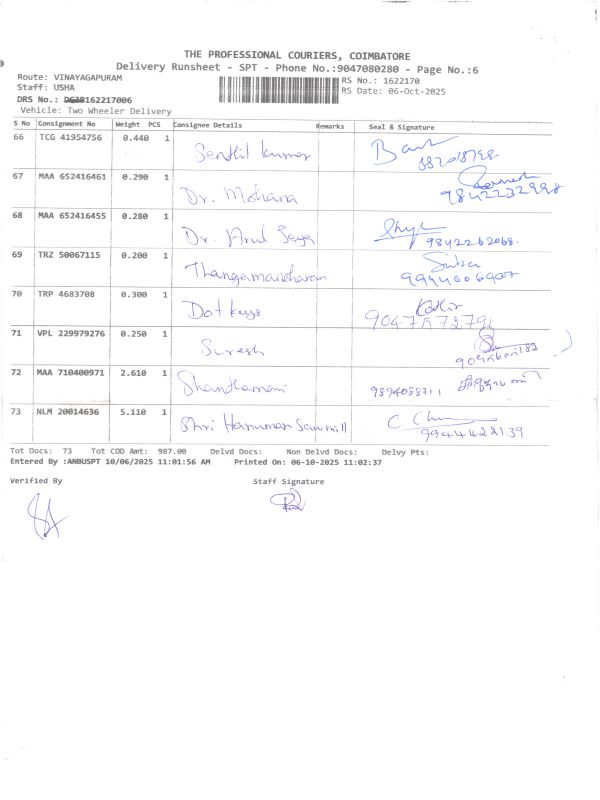 THE PROFESSIONAL COURIERS, COIMBATORE
Delivery Runsheet - SPT - Phone No.:9047080280 - Page No.:6
Route: VINAYAGAPURAM
RS No.: 1622170
Staff: USHA
RS Date: 06-Oct-2025
DRS No.: 162217006
Vehicle: Two Wheeler Delivery
S No Consignment No Weight PCS Consignee Details Remarks Seal & Signature
66 TCG 41954756 0.440 1 Senthil Kumar
67 MAA 652416461 0.290 1 Dr. Mohana 9842232998
68 MAA 652416455 0.280 1 Dr. Arul Jaya 9842262068.
69 TRZ 50067115 0.200 1 9944006907
70 TRP 4683708 0.300 1 Dot keys
71 VPL 229979276 0.250 1 Suresh
72 MAA 710400971 2.610 1 Shanthamani 9894088711
73 NLM 20014636 5.110 1 Shri Hanuman Sawmill 9944422139
Tot Docs: 73 Tot COD Amt: 987.00 Delvd Docs: Non Delvd Docs: Delvy Pts:
Entered By :ANBUSPT 10/06/2025 11:01:56 AM Printed On: 06-10-2025 11:02:37
Verified By Staff Signature